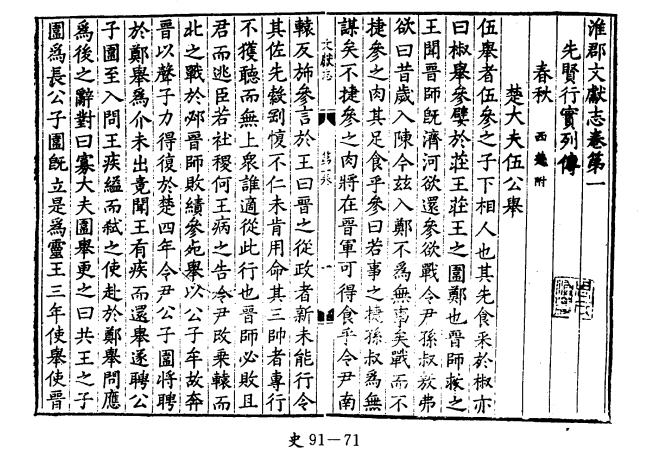 淮郡文獻志卷第一
先賢行實列傳
春秋 西楚附
楚大夫伍公舉
伍舉者伍參之子下相人也其先食采於椒亦
曰椒舉參嬖於莊王莊王之圍鄭也晉師救之
王聞晉師旣濟河欲還參欲戰令尹孫叔敖弗
欲曰昔歲入陳今玆入鄭不爲無事矣戰而不
捷參之肉其足食乎參曰若事之捷孫叔爲無
謀矣不捷參之肉將在晉軍可得食乎令尹南
轅反斾參言於王曰晉之從政者新未能行令
其佐先縠剛愎不仁未肯用命其三帥者專行
不獲聽而無上衆誰適從此行也晉師必敗且
君而逃臣若社稷何王病之告令尹改乘轅而
北之戰於邲晉師敗績參死舉以公子牟故奔
晉以聲子力得復於楚四年令尹公子圍將聘
於鄭舉爲介未出竟聞王有疾而還舉遂聘公
子圍至入問王疾縊而弑之使赴於鄭舉問應
爲後之辭對曰寡大夫圍舉更之曰共王之子
圍爲長公子圍旣立是爲靈王三年使舉使晉
文獻志
卷一
一
史 91－71